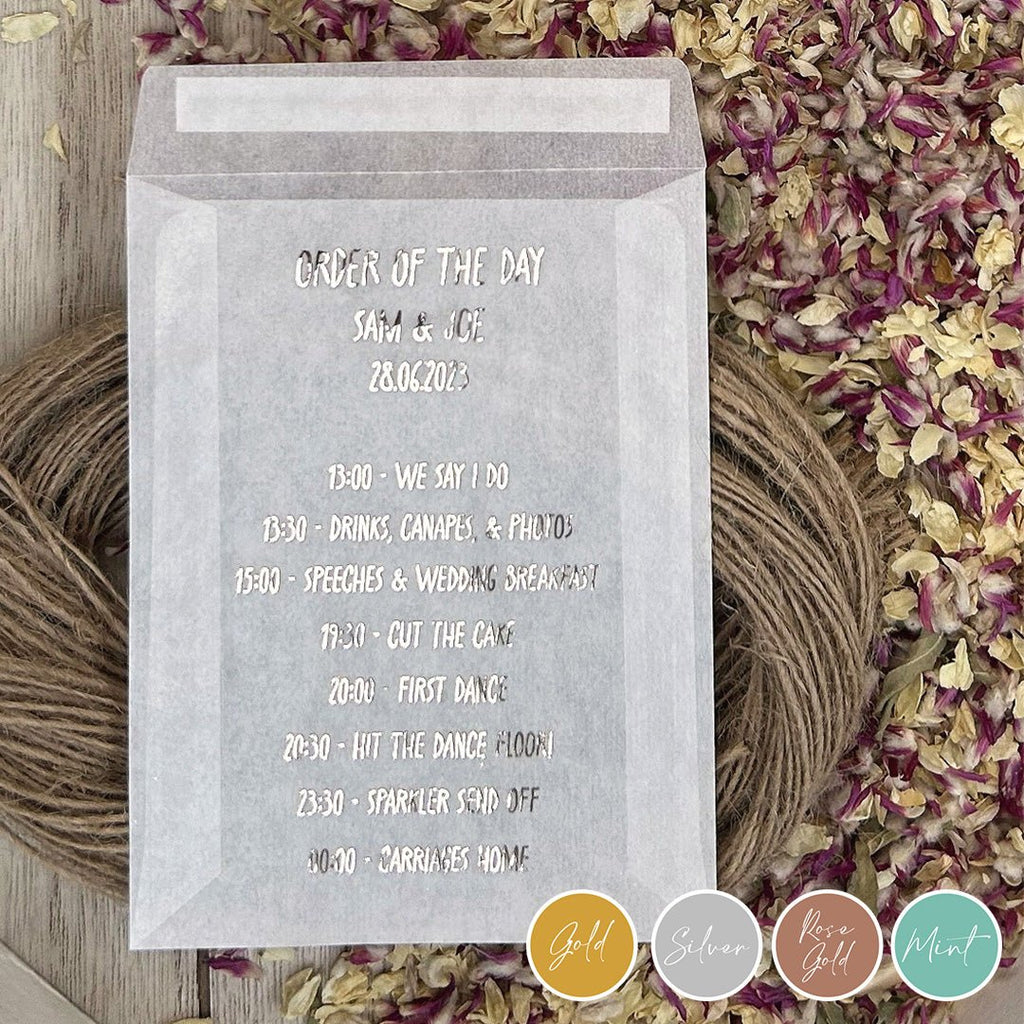 ORDER OF THE DAY
SAM & JOE
28.06.2023
13:00 - WE SAY I DO
13:30 - DRINKS, CANAPES, & PHOTOS
15:00 - SPEECHES & WEDDING BREAKFAST
19:30 - CUT THE CAKE
20:00 - FIRST DANCE
20:30 - HIT THE DANCE FLOOR!
23:30 - SPARKLER SEND OFF
00:00 - CARRIAGES HOME
Gold
Silver
Rose
Gold
Mint